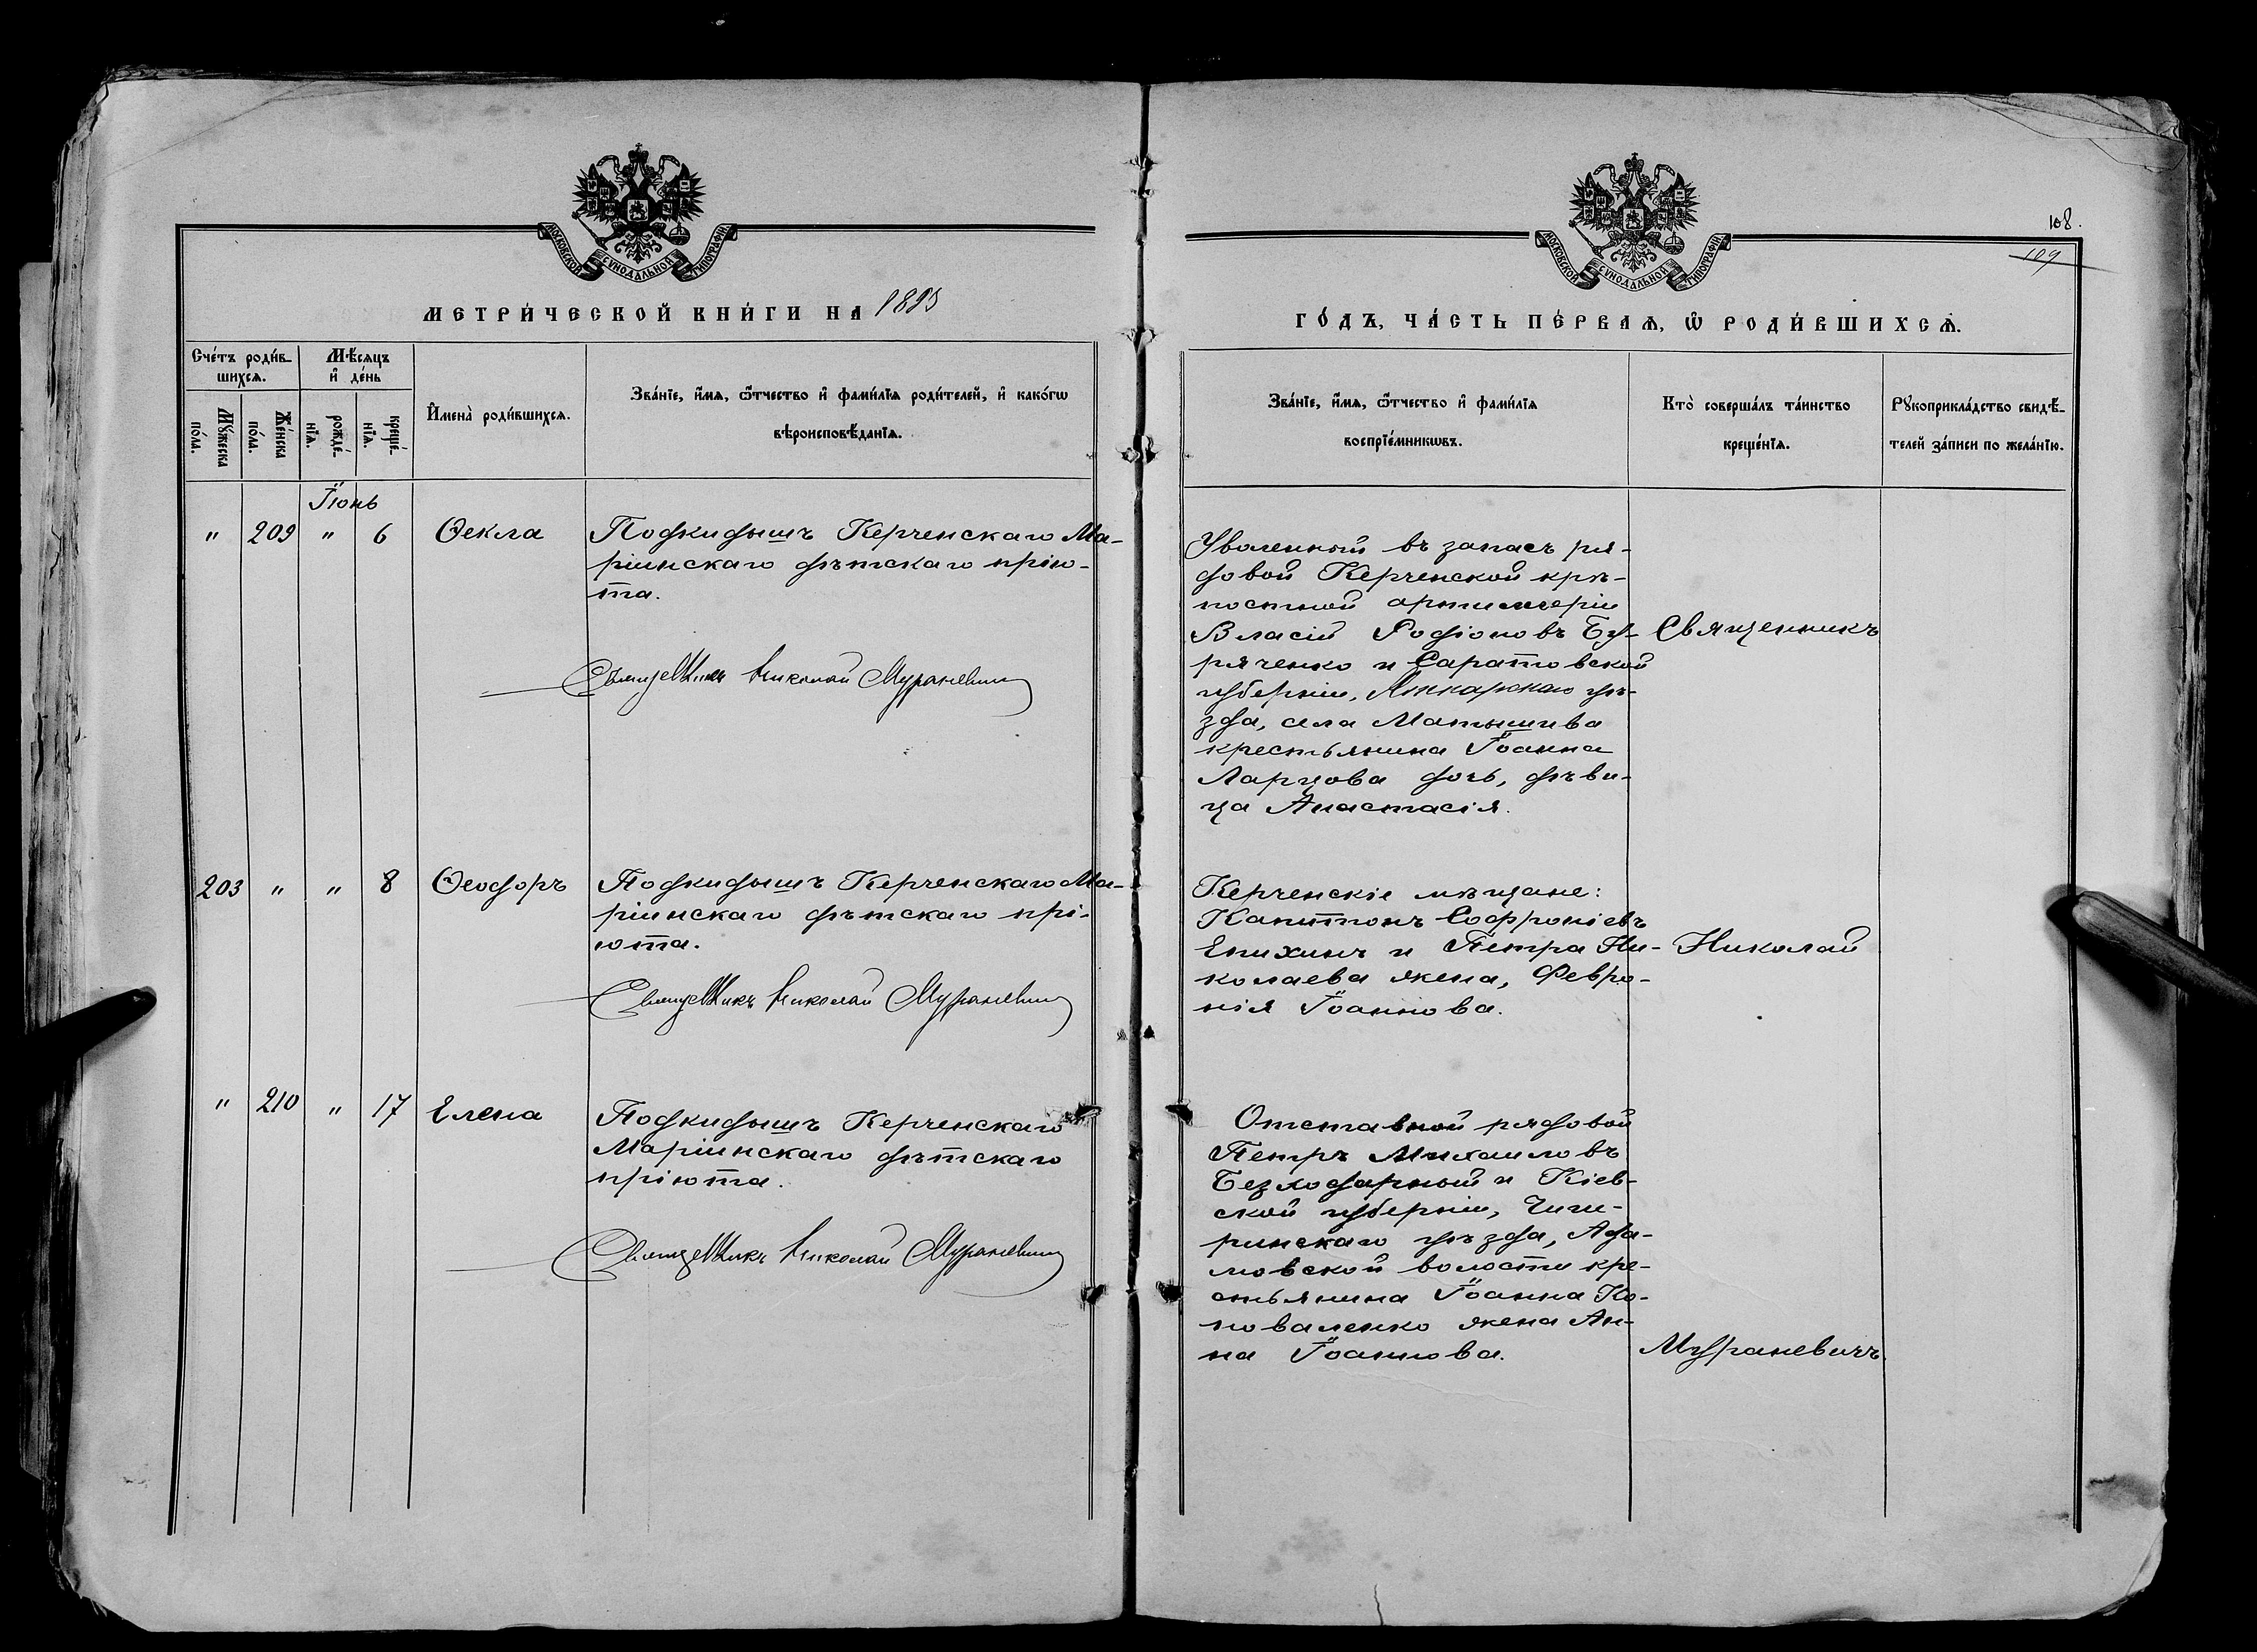 МОСКОВСКОЙ СУНОДАЛЬНОЙ ТИПОГРАФІИ
МЕТРИ́ЧЕСКОЙ КНИ́ГИ НА
Сче́тъ роди́в-
шихсѧ.
Мѣ́сяцъ
и҆ де́нь
Мꙋ́жеска
по́ла.
Же́нска
по́ла.
рожде́-
нїѧ.
креще́-
нїѧ.
И҆мена̀ роди́вшихсѧ.
Зва́нїе, и҆́мѧ, ѻ҆́тчество и҆ фами́лїѧ роди́телей, и҆ како́гѡ
вѣроисповѣ́данїѧ.
Іюнь
" 209 " 6 Ѳекла
Подкидышъ Керченскаго Ма-
ріинскаго дѣтскаго прію-
та.
Священникъ Николай Мураневичъ
203 " " 8 Ѳеодоръ
Подкидышъ Керченскаго Ма-
ріинскаго дѣтскаго прі-
юта.
Священникъ Николай Мураневичъ
" 210 " 17 Елена
Подкидышъ Керченскаго
Маріинскаго дѣтскаго
пріюта.
Священникъ Николай Мураневичъ
108.
109
МОСКОВСКОЙ СУНОДАЛЬНОЙ ТИПОГРАФІИ
ГО́ДЪ, ЧА́СТЬ ПЕ́РВАѦ, Ѡ҆ РОДИ́ВШИХСѦ.
Зва́нїе, и҆́мѧ, ѻ҆́тчество и҆ фами́лїѧ
воспрїе́мникѡвъ.
Кто̀ соверша́лъ та́инство
креще́нїѧ.
Рꙋкоприкла́дство свидѣ́-
телей за́писи по жела́нїю.
Уволенный въ запасъ ря-
довой Керченской крѣ-
постной артиллеріи
Власій Родіоновъ Бу-
ряченко и Саратовской
губерніи, Аткарскаго уѣ-
зда, села Матышева
крестьянина Іоанна
Ларцова дочь, дѣви-
ца Анастасія.
Священникъ
Керченскіе мѣщане:
Капитонъ Софроніевъ
Епихинъ и Петра Ни-
колаева жена, Февро-
нія Іоаннова.
Николай
Отставной рядовой
Петръ Михаиловъ
Безкодарный и Кіев-
ской губерніи, Чиги-
ринскаго уѣзда, Ада-
мовской волости кре-
стьянина Іоанна Ко-
новаленко жена Ан-
на Іоаннова.
Мураневичъ.